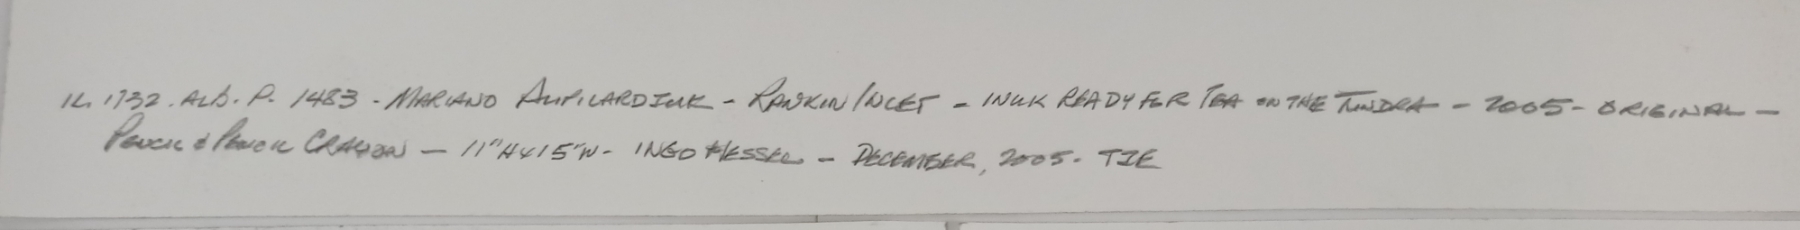 IL. 1732. ALB. P. 1483 - MARIANO AUPILARDJUK - RANKIN INLET - INUK READY FOR TEA ON THE TUNDRA - 2005 - ORIGINAL -
PENCIL & PENCIL CRAYON - 11"H x 15"W - INGO HESSEL - DECEMBER, 2005 - TIE